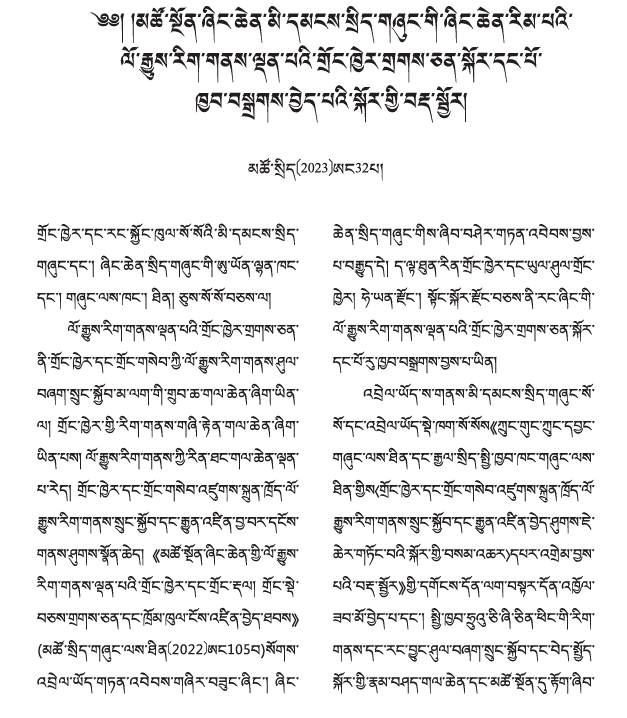 ༄༅། །མཚོ་སྔོན་ཞིང་ཆེན་མི་དམངས་སྲིད་གཞུང་གི་ཞིང་ཆེན་རིམ་པའི་
ལོ་རྒྱུས་རིག་གནས་ལྡན་པའི་གྲོང་ཁྱེར་གྲགས་ཅན་སྐོར་དང་པོ་
ཁྱབ་བསྒྲགས་བྱེད་པའི་སྐོར་གྱི་བརྡ་སྦྱོར།
མཚོ་སྲིད(2023)ཨང32པ།
གྲོང་ཁྱེར་དང་རང་སྐྱོང་ཁུལ་སོ་སོའི་མི་དམངས་སྲིད་
གཞུང་དང་། ཞིང་ཆེན་སྲིད་གཞུང་གི་ཨུ་ཡོན་ལྷན་ཁང་
དང་། གཞུང་ལས་ཁང་། ཐིན། ཅུས་སོ་སོ་བཅས་ལ།
ལོ་རྒྱུས་རིག་གནས་ལྡན་པའི་གྲོང་ཁྱེར་གྲགས་ཅན་
ནི་གྲོང་ཁྱེར་དང་གྲོང་གསེབ་ཀྱི་ལོ་རྒྱུས་རིག་གནས་ཤུལ་
བཞག་སྲུང་སྐྱོབ་མ་ལག་གི་གྲུབ་ཆ་གལ་ཆེན་ཞིག་ཡིན་
ལ། གྲོང་ཁྱེར་གྱི་རིག་གནས་གཞི་རྟེན་གལ་ཆེན་ཞིག་
ཡིན་པས། ལོ་རྒྱུས་རིག་གནས་ཀྱི་རིན་ཐང་གལ་ཆེན་ལྡན་
པ་རེད། གྲོང་ཁྱེར་དང་གྲོང་གསེབ་འཛུགས་སྐྲུན་ཁྲོད་ལོ་
རྒྱུས་རིག་གནས་སྲུང་སྐྱོབ་དང་རྒྱུན་འཛིན་བྱ་བར་དངོས་
གནས་ཤུགས་སྣོན་ཆེད། 《མཚོ་སྔོན་ཞིང་ཆེན་གྱི་ལོ་རྒྱུས་
རིག་གནས་ལྡན་པའི་གྲོང་ཁྱེར་དང་གྲོང་རྡལ། གྲོང་སྡེ་
བཅས་གྲགས་ཅན་དང་ཁྲོམ་ཁུལ་ངོས་འཛིན་བྱེད་ཐབས》
(མཚོ་སྲིད་གཞུང་ལས་ཐིན(2022)ཨང105བ)སོགས་
འབྲེལ་ཡོད་གཏན་འབེབས་གཞིར་བཟུང་ཞིང་། ཞིང་
ཆེན་སྲིད་གཞུང་གིས་ཞིབ་བཤེར་གཏན་འབེབས་བྱས་
པ་བརྒྱུད་དེ། ད་ལྟ་ཐུན་རིན་གྲོང་ཁྱེར་དང་ཡུལ་ཤུལ་གྲོང་
ཁྱེར། ཧེ་ཡན་རྫོང་། སྟོང་སྐོར་རྫོང་བཅས་ནི་རང་ཞིང་གི་
ལོ་རྒྱུས་རིག་གནས་ལྡན་པའི་གྲོང་ཁྱེར་གྲགས་ཅན་སྐོར་
དང་པོ་རུ་ཁྱབ་བསྒྲགས་བྱས་པ་ཡིན།
འབྲེལ་ཡོད་ས་གནས་མི་དམངས་སྲིད་གཞུང་སོ་
སོ་དང་འབྲེལ་ཡོད་སྡེ་ཁག་སོ་སོས《ཀྲུང་གུང་ཀྲུང་དབྱང་
གཞུང་ལས་ཐིན་དང་རྒྱལ་སྲིད་སྤྱི་ཁྱབ་ཁང་གཞུང་ལས་
ཐིན་གྱིས〈གྲོང་ཁྱེར་དང་གྲོང་གསེབ་འཛུགས་སྐྲུན་ཁྲོད་ལོ་
རྒྱུས་རིག་གནས་སྲུང་སྐྱོབ་དང་རྒྱུན་འཛིན་བྱེད་ཤུགས་ཇེ་
ཆེར་གཏོང་བའི་སྐོར་གྱི་བསམ་འཆར〉དཔར་འགྲེམ་བྱས་
པའི་བརྡ་སྦྱོར》གྱི་དགོངས་དོན་ལག་བསྟར་དོན་འཁྱོལ་
ཟབ་མོ་བྱེད་པ་དང་། སྤྱི་ཁྱབ་ཧྲུའུ་ཅི་ཞི་ཅིན་ཕིང་གི་རིག་
གནས་དང་རང་བྱུང་ཤུལ་བཞག་སྲུང་སྐྱོབ་དང་བེད་སྤྱོད་
སྐོར་གྱི་རྣམ་བཤད་གལ་ཆེན་དང་མཚོ་སྔོན་དུ་རྟོག་ཞིབ་